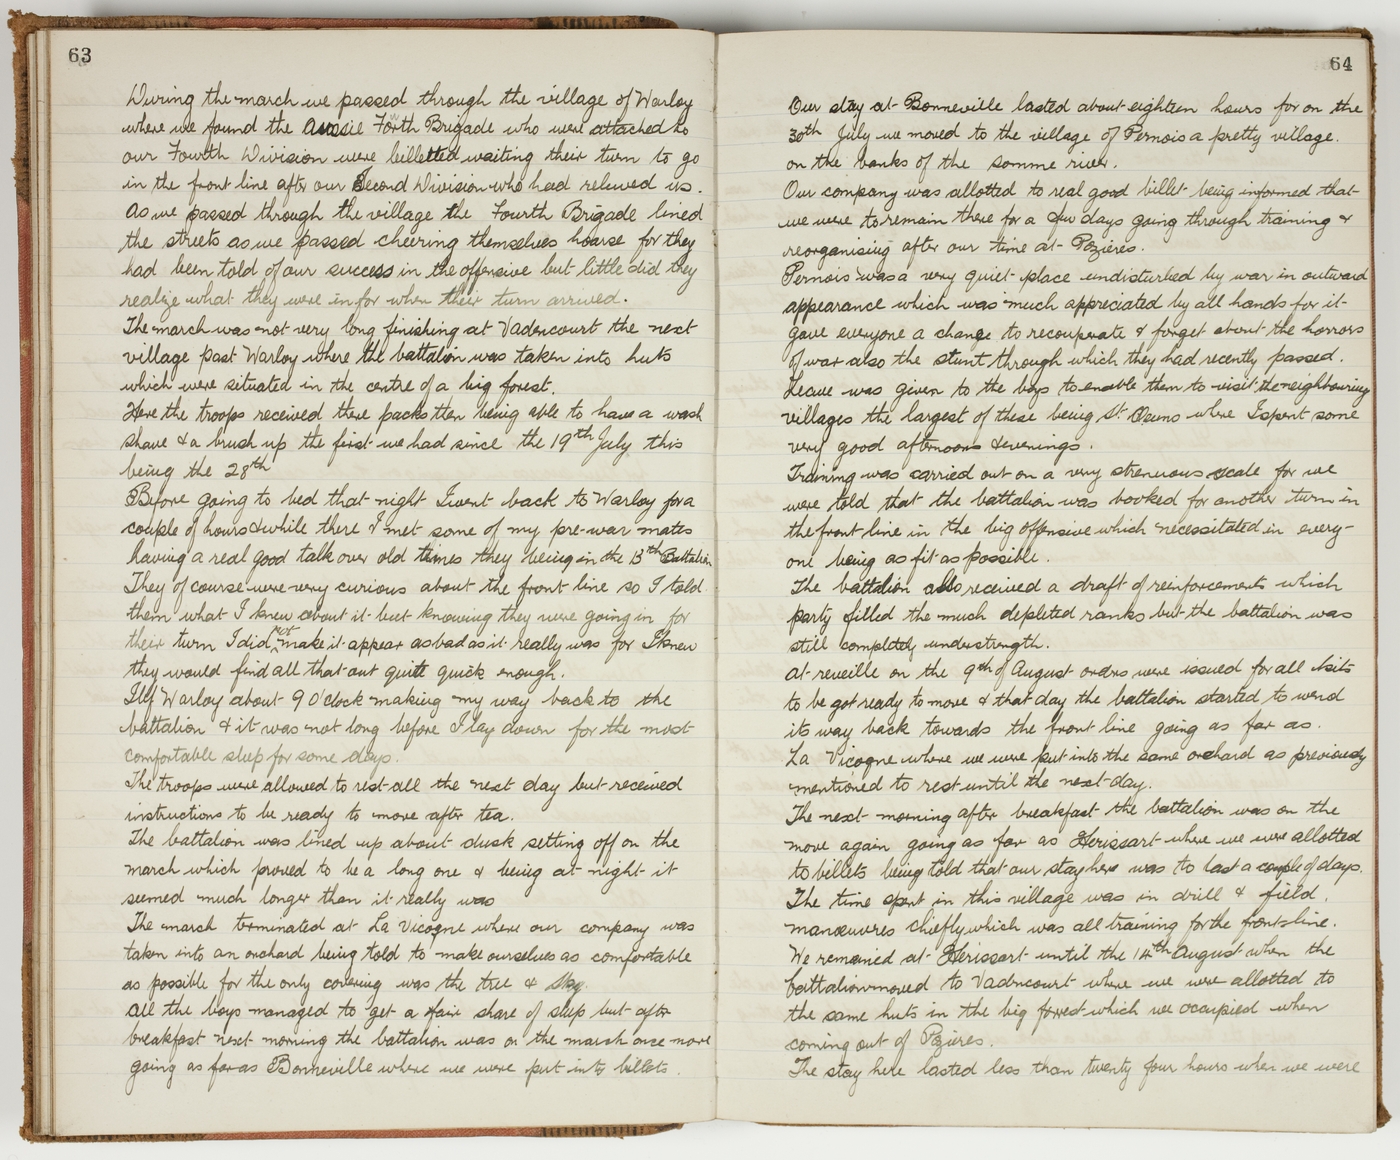 63
During the march we passed through the village of Warloy
where we found the Aussie Forth Brigade who were attached to
our Fourth Division were billetted waiting their turn to go
in the front line after our Second Division who had relieved us.
As we passed through the village the Fourth Brigade lined
the streets as we passed cheering themselves hoarse for they
had been told of our success in the offensive but little did they
realize what they were in for when their turn arrived.
The march was not very long finishing at Vadencourt the next
village past Warloy where the battalion was taken into huts
which were situated in the centre of a big forest.
Here the troops received there packs then being able to have a wash
shave & a brush up the first we had since the 19th July this
being the 28th
Before going to bed that night I went back to Warloy for a
couple of hours & while there I met some of my pre-war mates
having a real good talk over old times they being in the 13th Battalion
They of course were very curious about the front line so I told
them what I knew about it but knowing they were going in for
their turn I did not make it appear as bad as it really was for I knew
they would find all that out quite quick enough.
I left Warloy about 9 O'clock making my way back to the
battalion & it was not long before I lay down for the most
comfortable sleep for some days.
The troops were allowed to rest all the next day but received
instructions to be ready to move after tea.
The battalion was lined up about dusk setting off on the
march which proved to be a long one & being at night it
seemed much longer than it really was
The march terminated at La Vicogne where our company was
taken into an orchard being told to make ourselves as comfortable
as possible for the only covering was the tree & sky.
All the boys managed to get a fair share of sleep but after
breakfast next morning the battalion was on the march once more
going as far as Bonneville where we were put into billets.
64
Our stay at Bonneville lasted about eighteen hours for on the
30th July we moved to the village of Pernois a pretty village.
on the banks of the somme river.
Our company was allotted to real good billet being informed that
we were to remain there for a few days going through training &
reorganising after our time at Pozieres.
Pernois was a very quiet place undisturbed by war in outward
appearance which was much appreciated by all hands for it
gave everyone a change to recouperate & forget about the horrors
of war also the stunt through which they had recently passed.
Leave was given to the boys to enable them to visit the neighbouring
villages the largest of these being St Ouens where I spent some
very good afternoons & evenings.
Training was carried out on a very strenuous scale for we
were told that the battalion was booked for another turn in
the front line in the big offensive which necessitated in every-
one being as fit as possible.
The battalion also received a draft of reinforcements which
party filled the much depleted ranks but the battalion was
still completely understrength.
At reveille on the 9th of August orders were issued for all kits
to be got ready to move & that day the battalion started to wend
its way back towards the front line going as far as.
La Vicogne where we were put into the same orchard as previously
mentioned to rest until the next day.
The next morning after breakfast the battalion was on the
move again going as far as Herissart where we were allotted
to billets being told that our stay here was to last a couple of days.
The time spent in this village was in drill & field.
manœuvres chiefly which was all training for the front line.
We remained at Herissart until the 14th August when the
battalion moved to Vadencourt where we were allotted to
the same huts in the big forrest which we occupied when
coming out of Pozieres.
The stay here lasted less than twenty four hours when we were